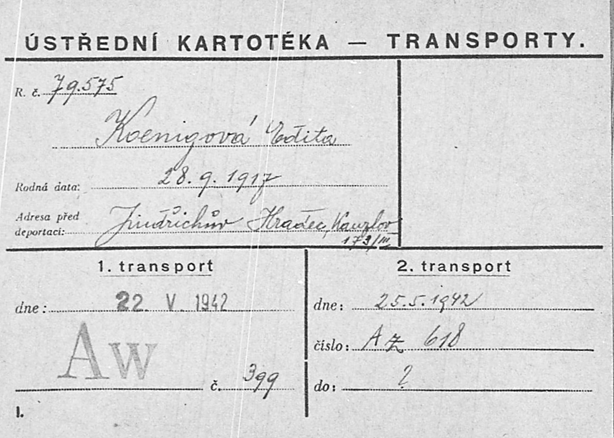 ÚSTŘEDNÍ KARTOTÉKA — TRANSPORTY.
R. č. 79.575
Koenigová Edita
Rodná data: 28. 9. 1917
Adresa před deportací: Jindřichův Hradec, Kanzlov
173/III
1. transport
dne: 22 V. 1942
Aw
č. 399
2. transport
dne: 25.5.1942
číslo: Az 618
do: ?
I.